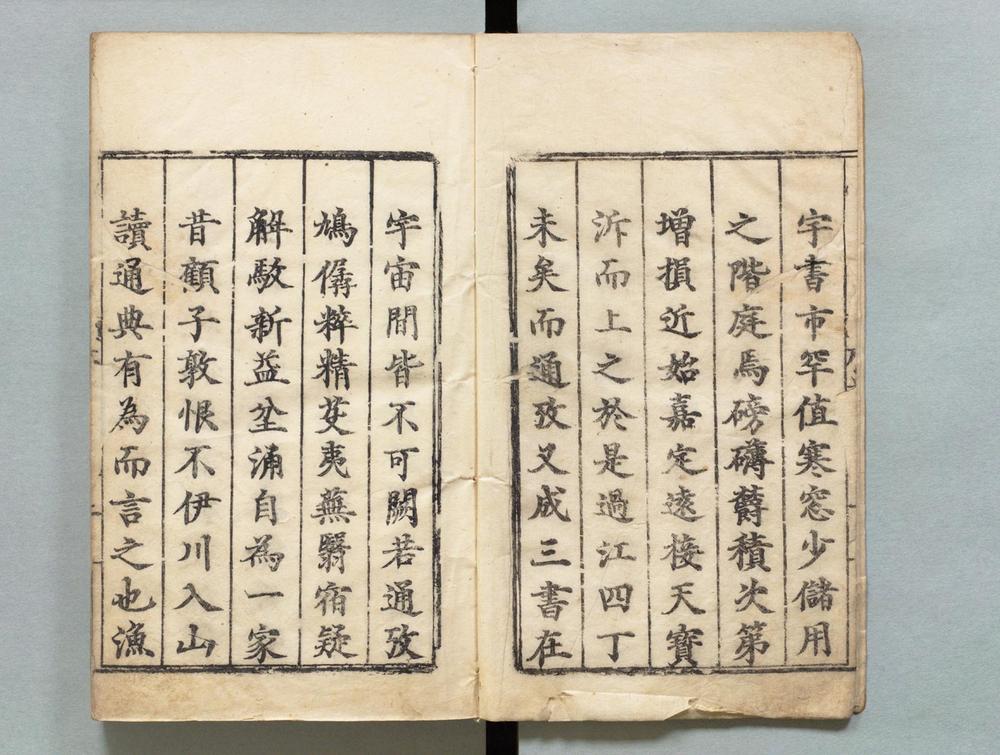 宇書市罕值寒窓少儲用
之階庭焉磅礴欝積次第
增損近始嘉定遠接天寶
泝而上之於是過江四丁
未矣而通攷又成三書在
宇宙間皆不可闕若通攷
鳩僝粹精芟夷蕪翳宿疑
解駁新益坌涌自為一家
昔顧子敦恨不伊川入山
讀通典有為而言之也漁